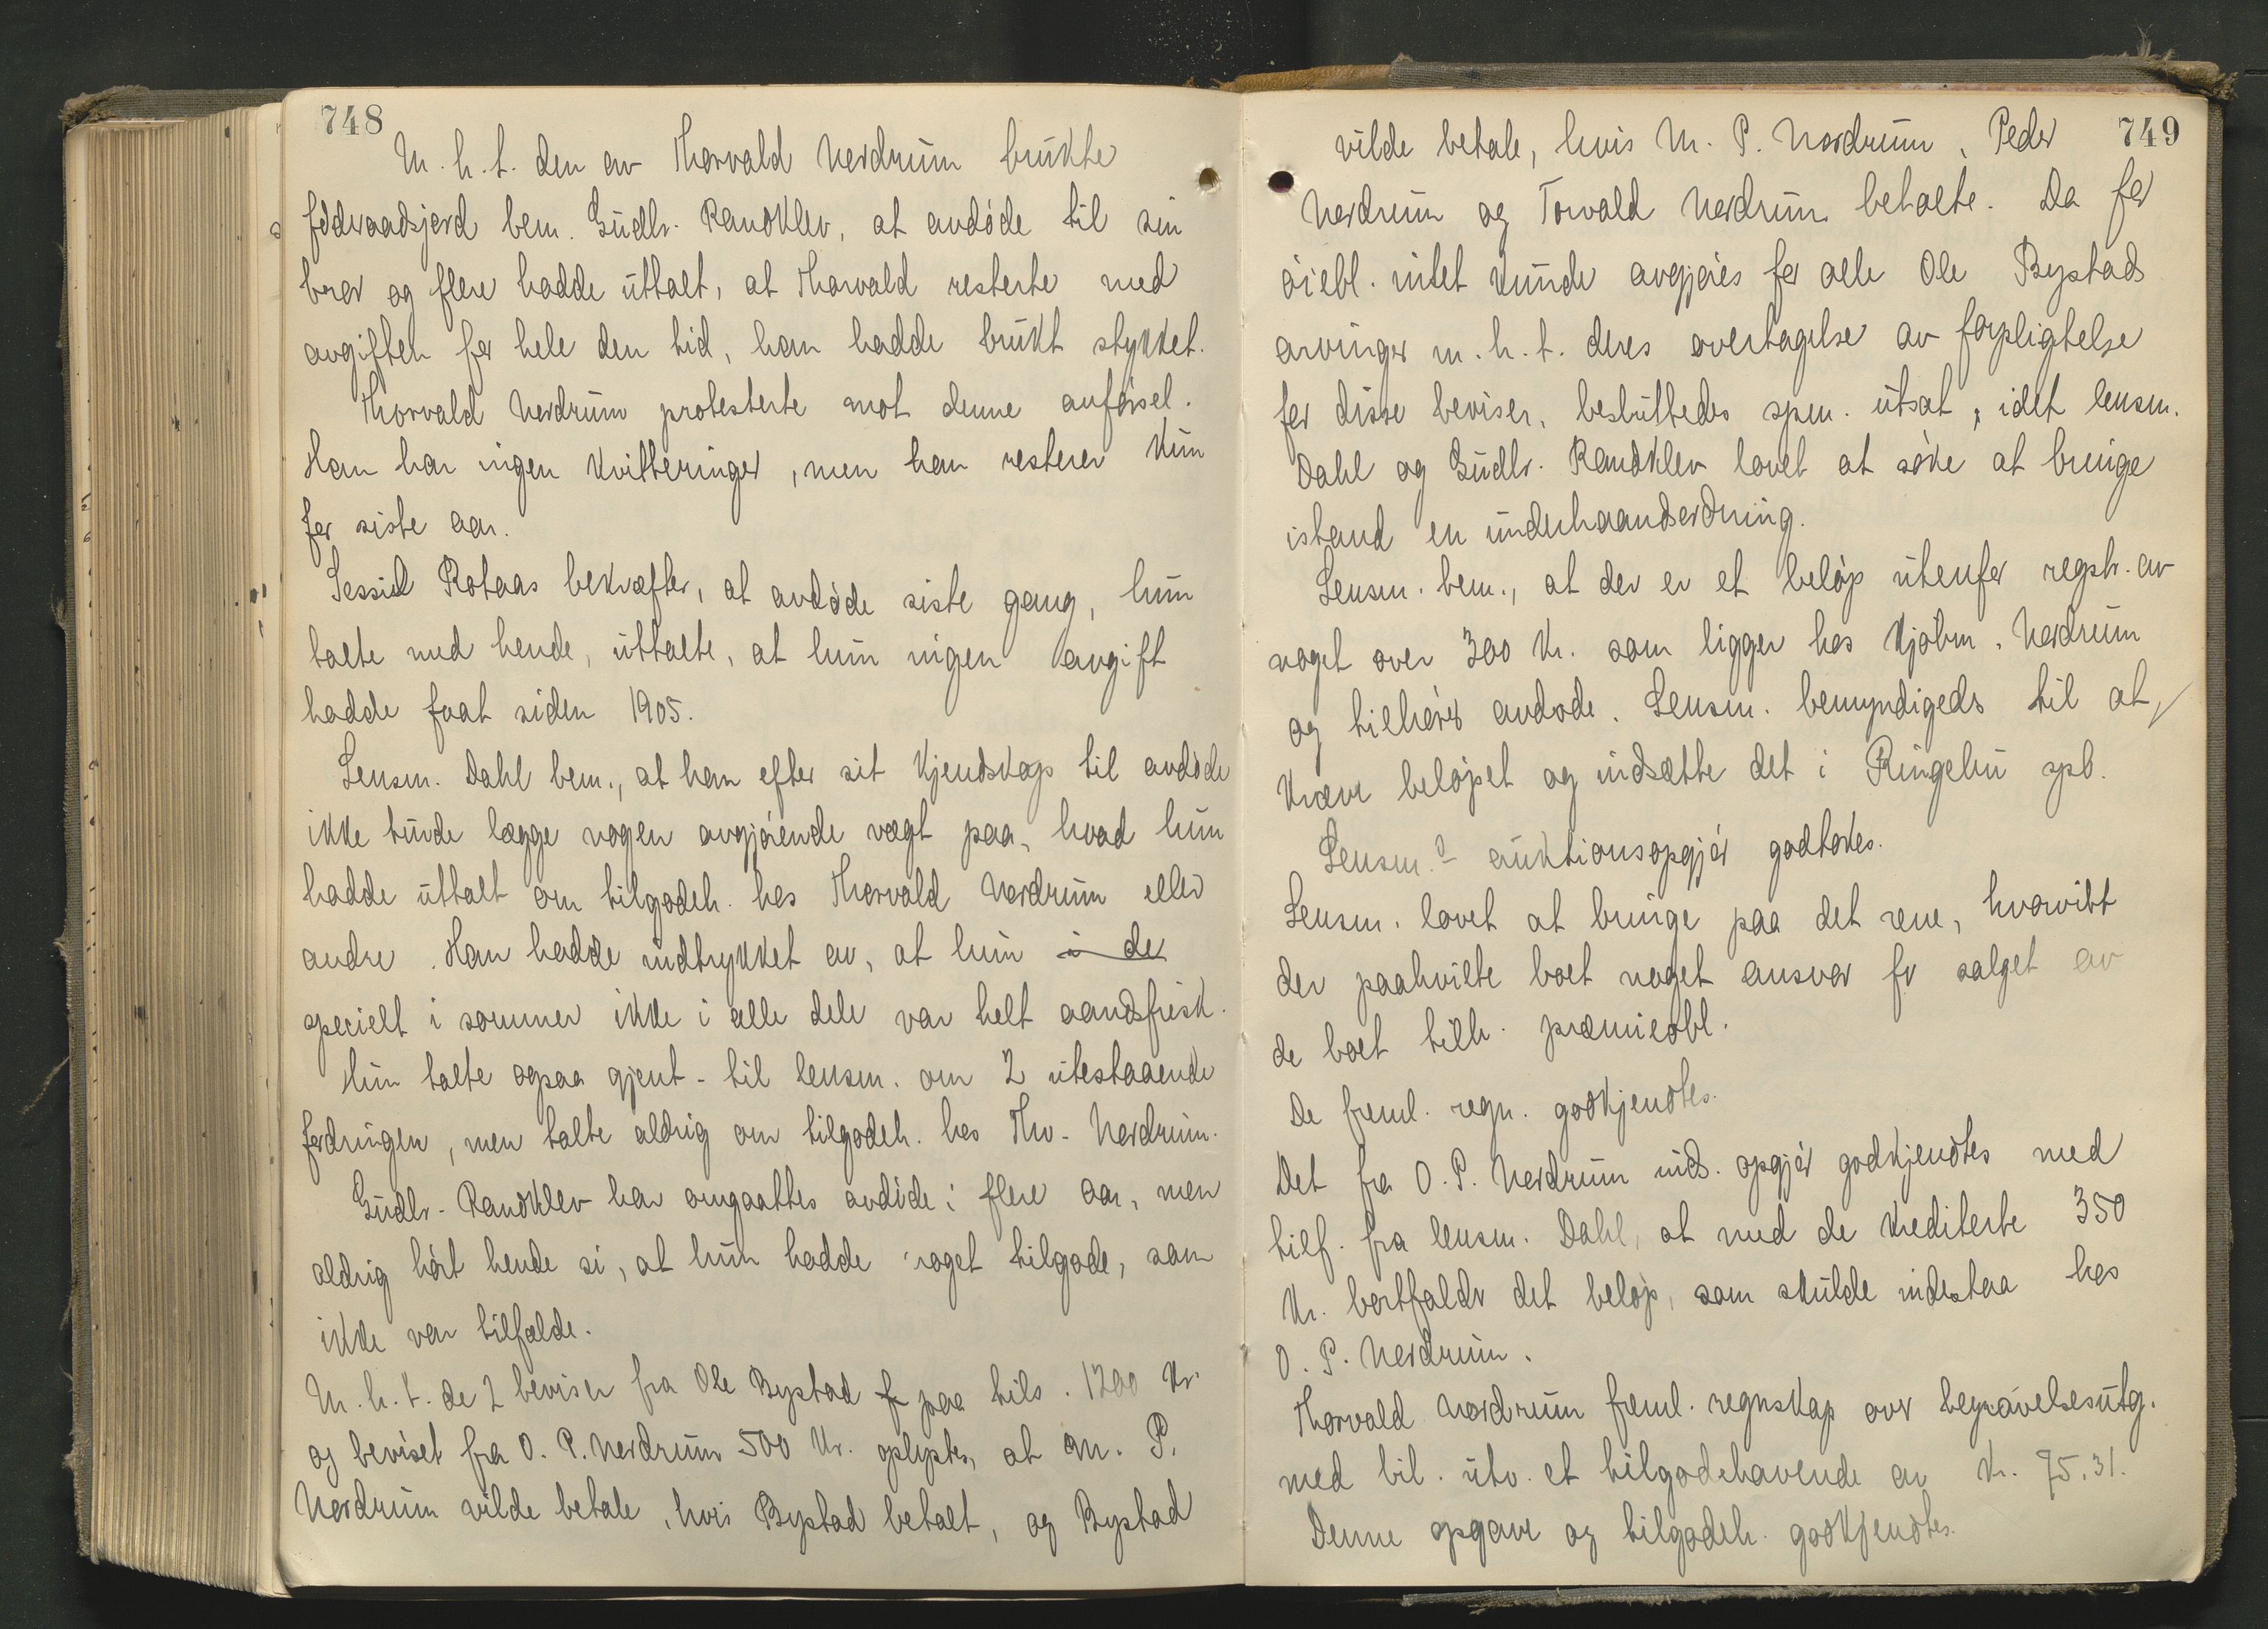 748
M. h. t. den av Thorvald Nordrum brukte
föderaadsjord bem. Gudbr. Randklev, at avdöde til sin
bror og flere hadde uttalt, at Thorvald resterte med
avgiften for hele den tid, han hadde brukt stykket.
Thorvald Nordrum protesterte mot denne anförsel.
Han har ingen kvitteringer, men han resterer kun
for siste aar.
Sessid Rotaas bekræfter, at avdöde siste gang, hun
talte med hende, uttalte, at hun ingen avgift
hadde faat siden 1905.
Lensm. Dahl bem., at han efter sit kjendskap til avdöde
ikke turde lægge nogen avgjörende vægt paa, hvad hun
hadde uttalt om tilgodeh. hos Thorvald Nordrum eller
andre. Han hadde indtrykket av, at hun i de
specielt i sommer ikke i alle dele var helt aandsfrisk.
Hun talte ogsaa gjent. til lensm. om 2 utestaaende
fordringer, men talte aldrig om tilgodeh. hos Thv. Nordrum.
Gudbr. Randklev har omgaattes avdöde i flere aar, men
aldrig hört hende si, at hun hadde noget tilgode, som
ikke var tilfælde.
M. h. t. de 2 beviser fra Ole Bystad f paa tils. 1200 kr.
og beviset fra O. P. Nordrum 500 kr. oplystes, at M. P.
Nordrum vilde betale, hvis Bystad betalt, og Bystad
749
vilde betale, hvis M. P. Nordrum, Peder
Nordrum og Torvald Nordrum betalte. Da for
öiebl. intet kunde avgjöres for alle Ole Bystads
arvinger m. h. t. deres overtagelse av forpligtelse
for disse beviser, besluttedes spm. utsat, idet lensm.
Dahl og Gudbr. Randklev lovet at söke at bringe
istand en underhaandsordning.
Lensm. bem., at der er et belöp utenfor regstr. av
noget over 300 kr. som ligger hos kjöbm. Nordrum
og tilhörer avdöde. Lensm. bemyndigedes til at
kræve belöpet og indsætte det i Ringebu spb.
Lensm.s auktionsopgjör godtokes.
Lensm. lovet at bringe paa det rene, hvorvitt
der paahvilte boet noget ansvar for salget av
de boet tilh. præmieobl.
De freml. regn. godkjendtes.
Det fra O. P. Nordrum inds. opgjör godkjendtes med
tilf. fra lensm. Dahl, at med de krediterte 350
kr. bortfalder det belöp, som skulde indestaa hos
O. P. Nordrum.
Thorvald Nordrum freml. regnskap over begravelsesutg.
med bil. utv. et tilgodehavende av kr. 75.31.
Denne opgave og tilgodeh. godkjendtes.